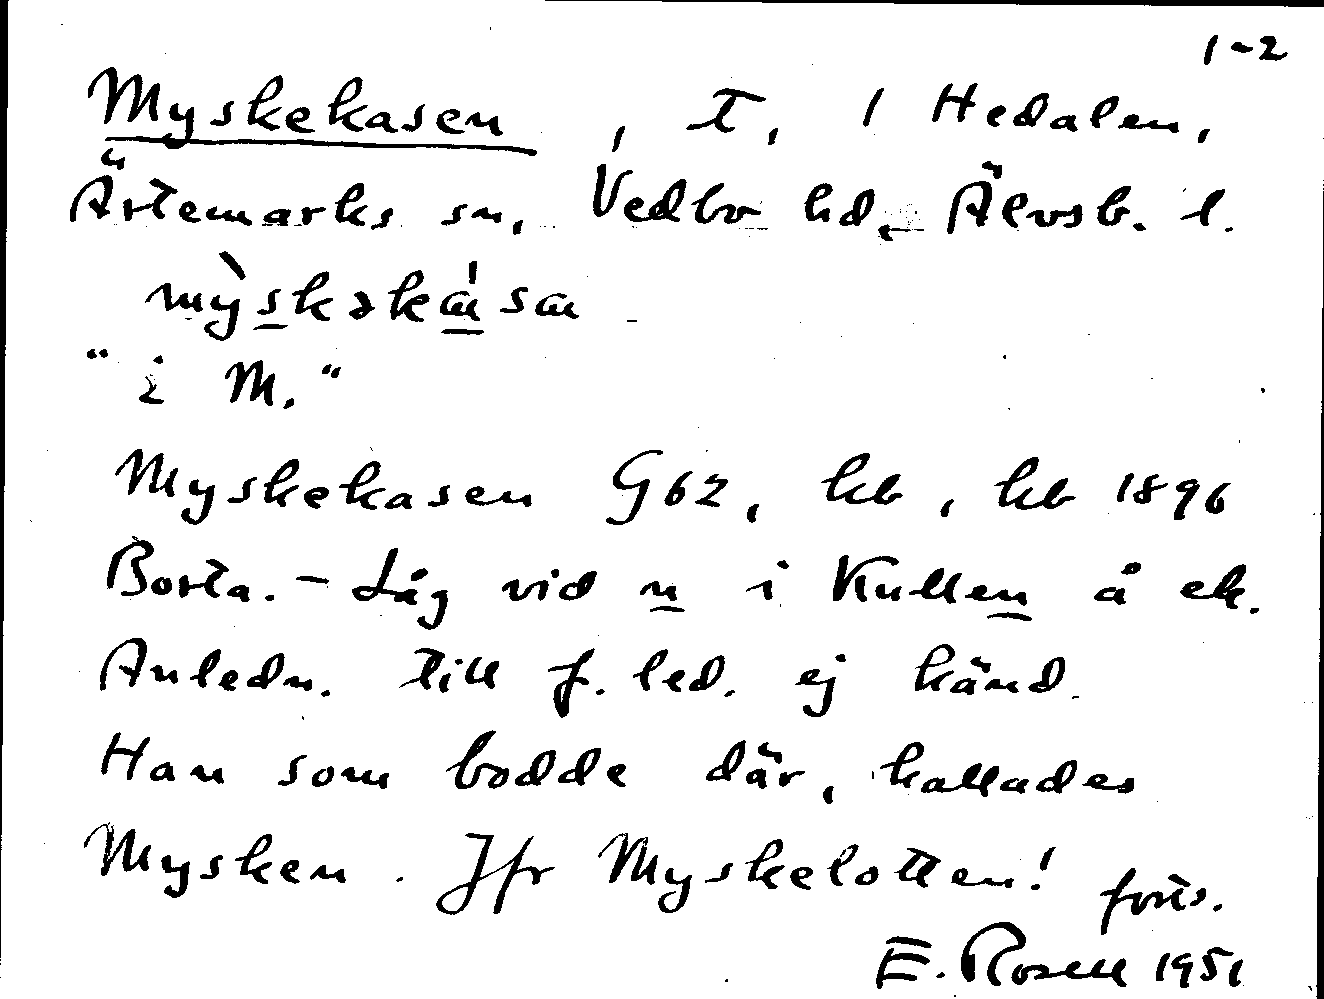 1-2
Myskekasen, T, 1 Hedalen,
Ärtemarks sn, Vedbo hd, Älvsb. l.
mỳskəkásа
"i M."
Myskekasen G62, kb, kb 1896
Borta. - Låg vid n i Kullen å ek.
Anledn. till f. led. ej känd.
Han som bodde där, kallades
Mysken. Jfr Myskelotten! forts.
E. Rosell 1951